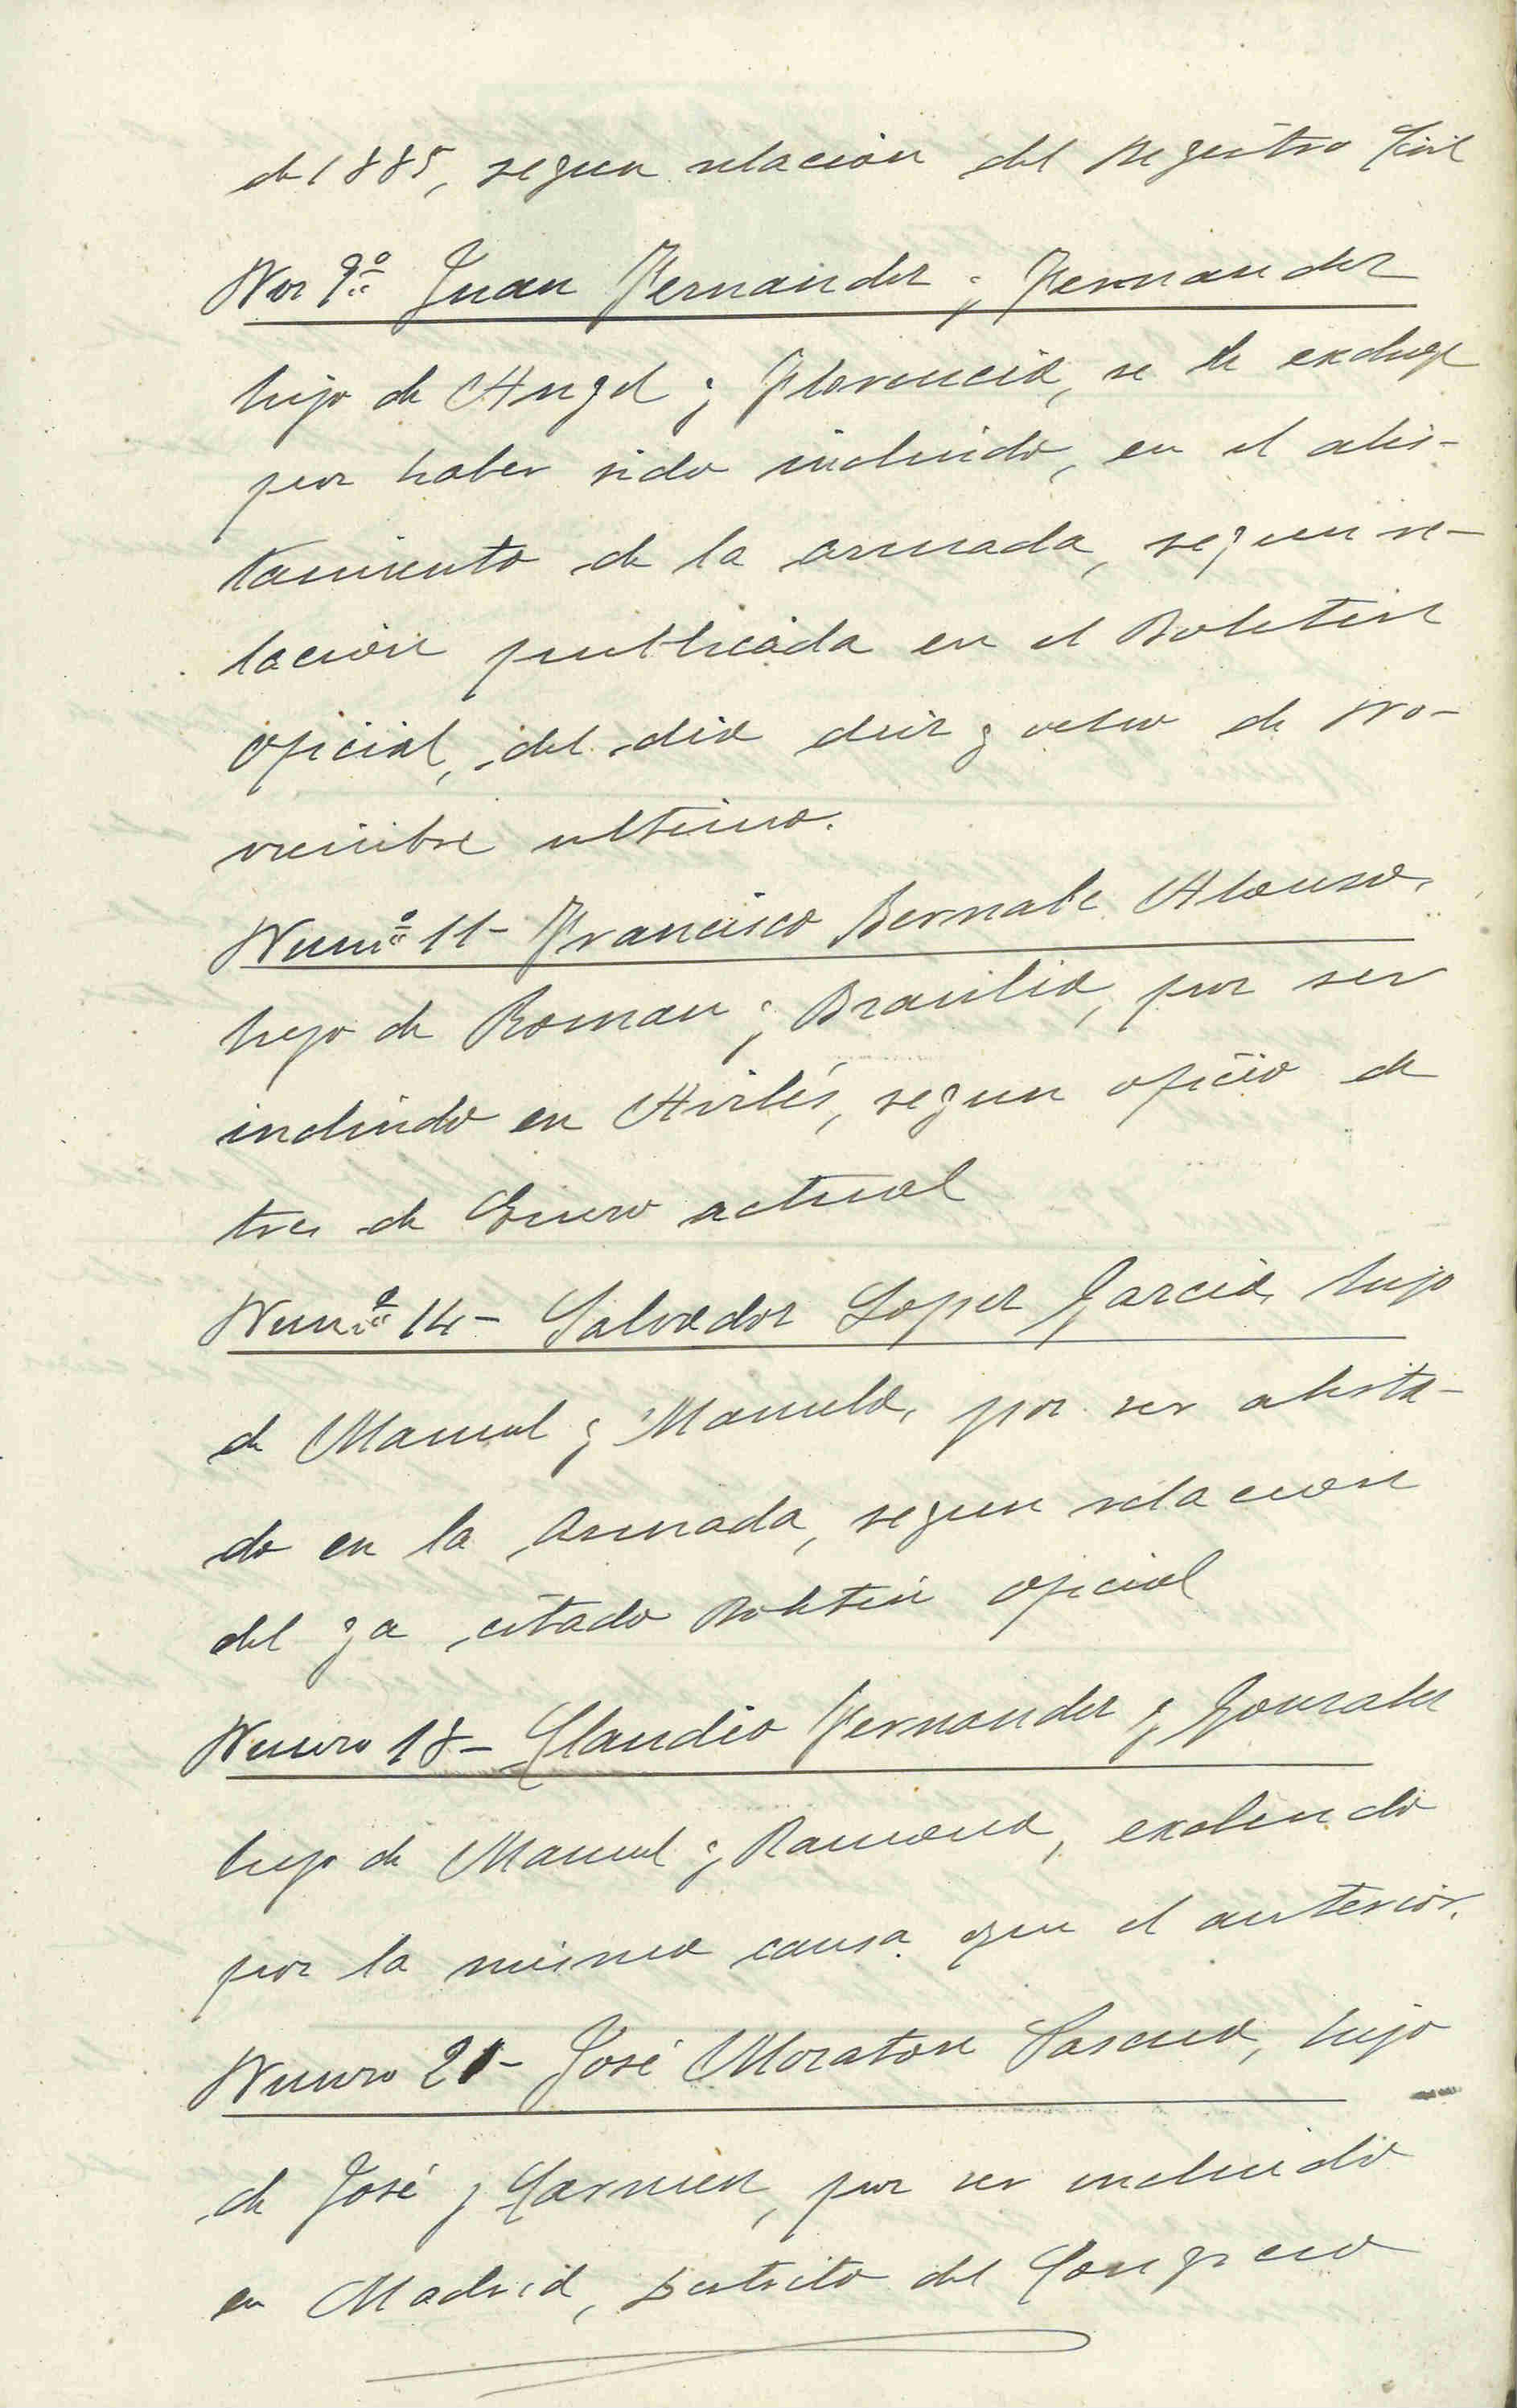 de 1885, segun relacion del Registro Civil
Nor 9º Juan Fernandez y Fernandez
hijo de Angel y Florencia, se le excluye
por haber sido incluido, en el alis-
tamiento de la armada, segun re-
lacion publicada en el Boletin
oficial, del dia diez y ocho de No-
viembre ultimo.
Numº 11- Francisco Bernabe Alonso,
hijo de Roman y Brasilia, por ser
incluido en Avilés, segun oficio de
tres de Enero actual
Numº 14- Salvador Lopez Garcia, hijo
de Manuel y Manuela, por ser alista-
do en la Armada, segun relacion
del ya citado Boletin oficial
Numro 18- Claudio Fernandez y Gonzalez
hijo de Manuel y Ramona, excluido
por la misma causa que el anterior.
Numro 21- José Moraton Pascua, hijo
de José y Carmen, por ser incluido
en Madrid, Distrito del Congreso